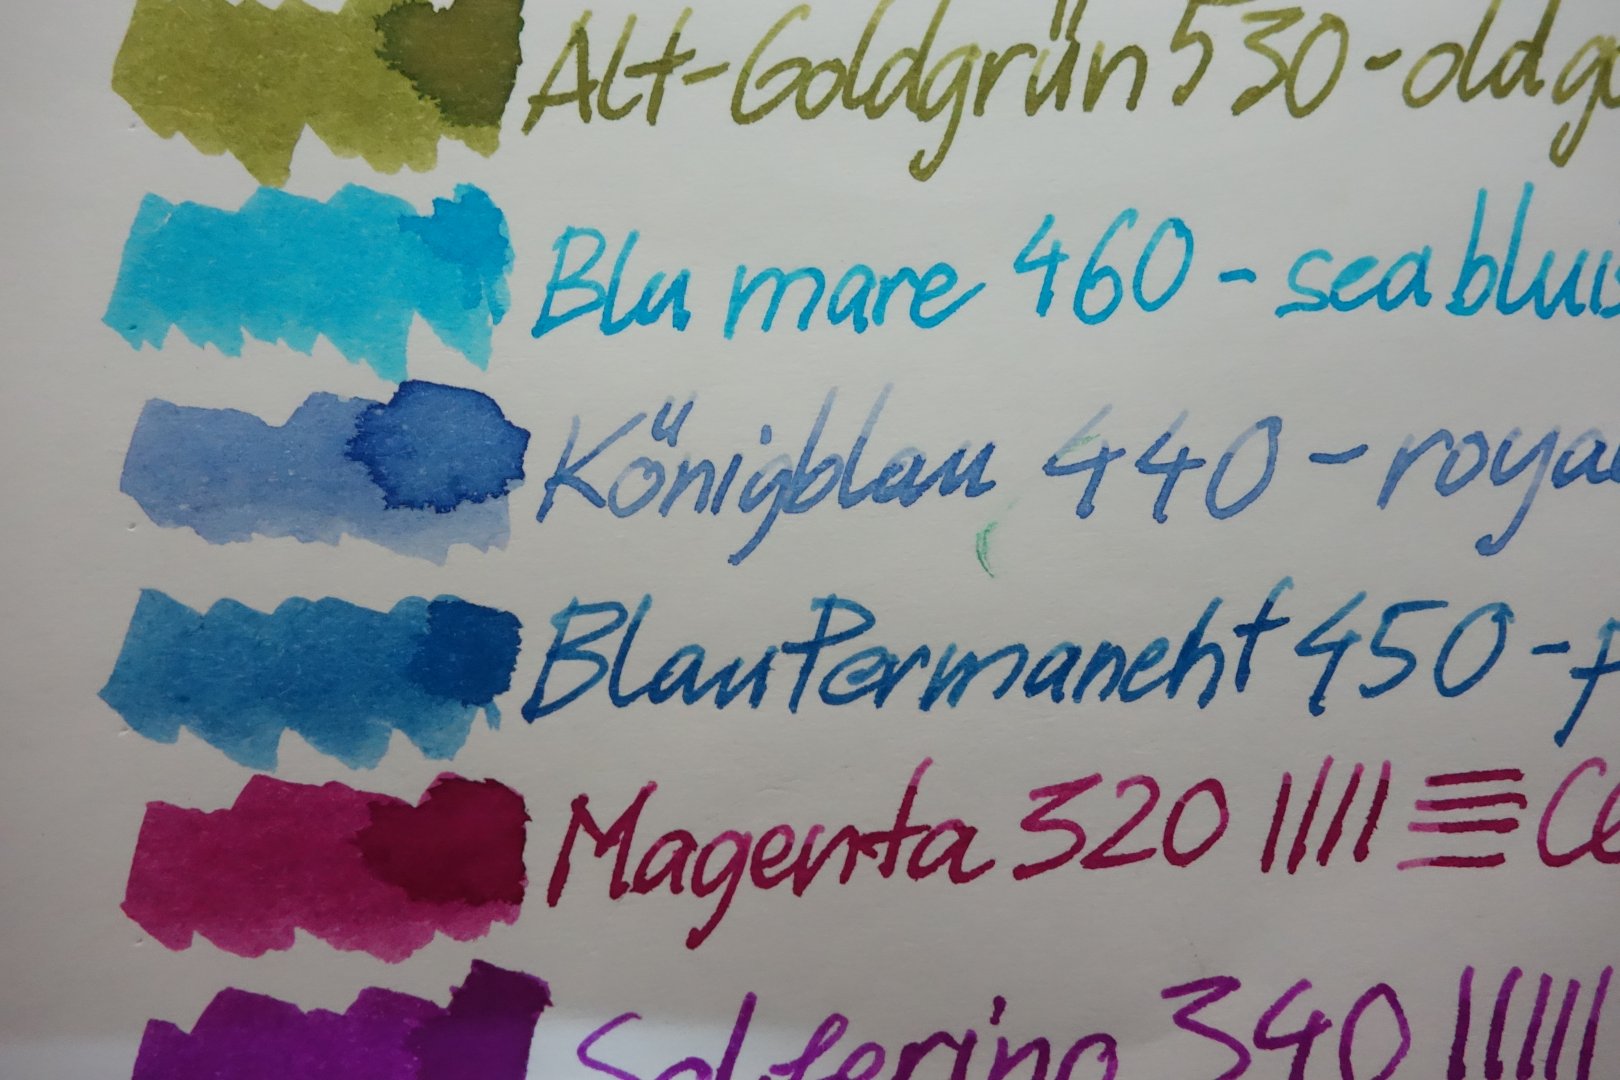 Alt-Goldgrün 530-old go
Blu mare 460 - sea bluis
Königblau 440 - roya
Blau Permanent 450 - p
Magenta 320 Ce
Solferino 340